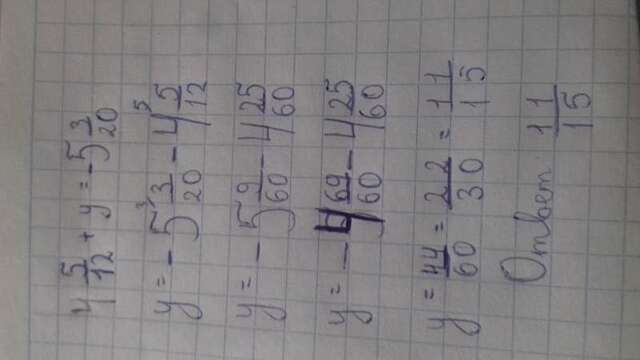 4 5/12 + y = -5 3/20
y = -5 3/20 - 4 5/12
y = -5 9/60 - 4 25/60
y = -4 69/60 - 4 25/60
y = 44/60 = 22/30 = 11/15
Ответ: 11/15